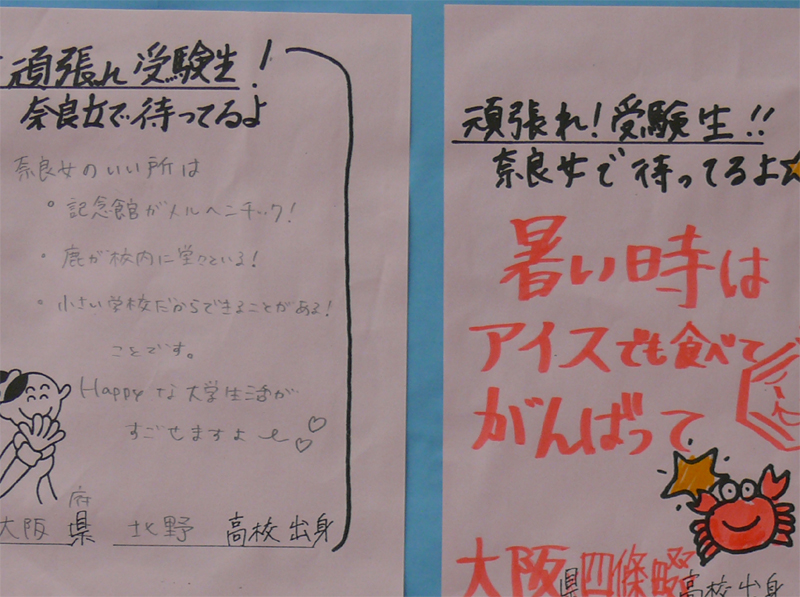 頑張れ受験生!
奈良女で待ってるよ
奈良女のいい所は
・記念館がメルヘンチック!
・鹿が校内に堂々といる!
・小さい学校だからできることがある!
ことです。
Happyな大学生活が
すごせますよ〜♡♡
大阪府県 北野 高校出身
頑張れ!受験生!!
奈良女で待ってるよ☆
暑い時は
アイスでも食べて
がんばって
大阪県四條畷高校出身